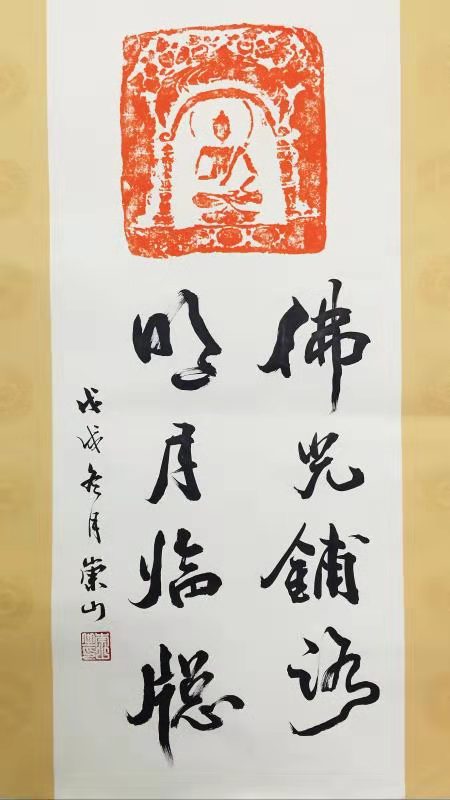 佛光鋪路
明月臨牕
戊戌冬月崇山